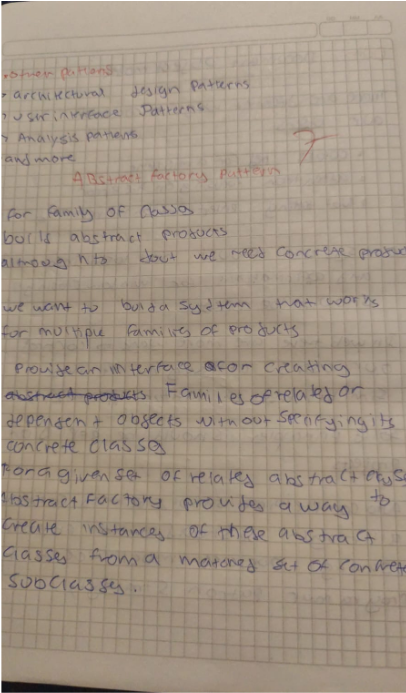 other patterns
> architectural design patterns
> user interface patterns
> Analysis patterns
and more
Abstract Factory Pattern
for family of classes
build abstract products
we need concrete product
we want to build a system that works
for multiple families of products
provide an interface for creating
abstract products Families of related or
dependent objects without specifying its
concrete classes
For a given set of related abstract
Abstract Factory provides a way to
create instances of these abstract
classes from a matched set of concrete
subclasses.